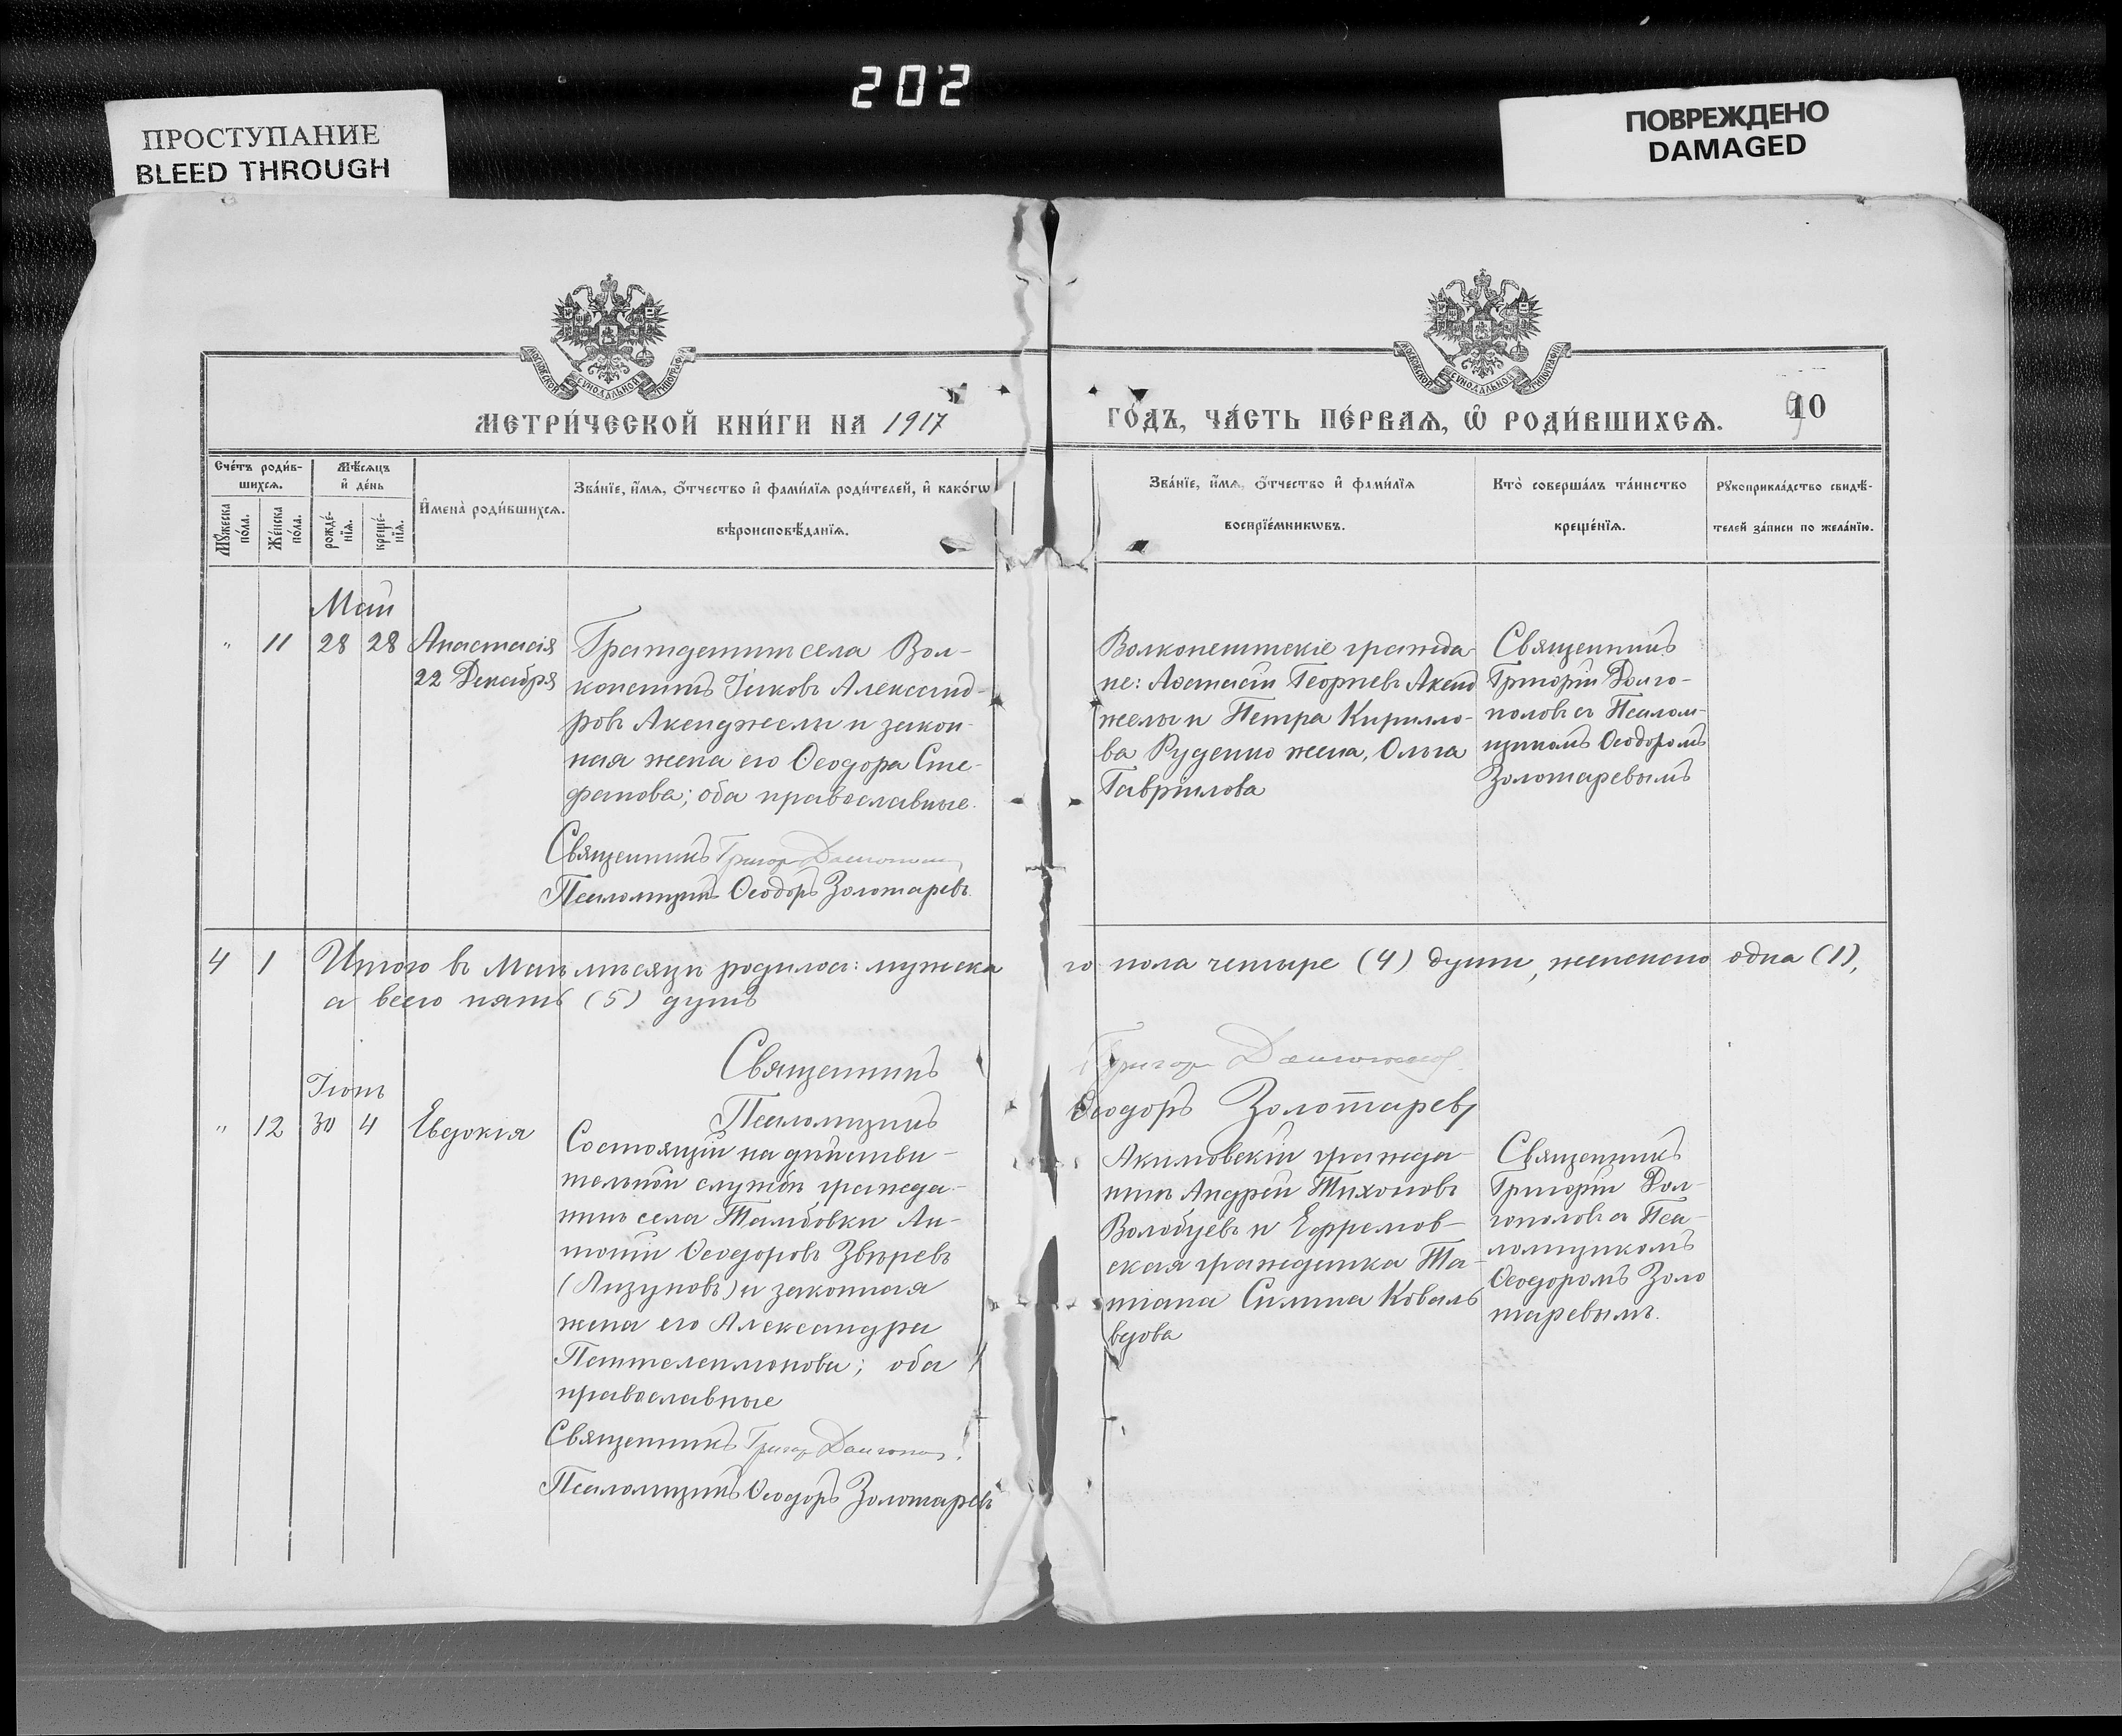 202
ПРОСТУПАНИЕ
BLEED THROUGH
ПОВРЕЖДЕНО
DAMAGED
МОСКОВСКОЙ СѴНОДАЛЬНОЙ ТИПОГРАФІИ
МОСКОВСКОЙ СѴНОДАЛЬНОЙ ТИПОГРАФІИ
МЕТРИ́ЧЕСКОЙ КНИ́ГИ НА 1917
ГО́ДЪ, ЧА́СТЬ ПЕ́РВАѦ, Ѡ҆ РОДИ́ВШИХСѦ.
10
Сче́тъ роди́в-
шихсѧ.
Мꙋ́жеска
по́ла.
Же́нска
по́ла.
Мѣ́сѧцъ
и҆ де́нь
рожде́-
нїѧ.
креще́-
нїѧ.
И҆мена̀ роди́вшихсѧ.
Зва́нїе, и҆́мѧ, ѻ҆́тчество и҆ фами́лїѧ роди́телей, и҆ како́гѡ
вѣроисповѣ́данїѧ.
Зва́нїе, и҆́мѧ, ѻ҆́тчество и҆ фами́лїѧ
воспрїе́мникѡвъ.
Кто̀ соверша́лъ та́инство
креще́нїѧ.
Рꙋкоприкла́дство свидѣ́-
телей за́писи по жела́нїю.
Май
" 11 28 28
Анастасія
22 Декабря
Гражданин села Вол-
конешть Іаковъ Александ-
ровъ Акенджелы и закон-
ная жена его Ѳеодора Сте-
фанова; оба православные.
Священникъ Григор
Псаломщикъ Ѳеодоръ Золотаревъ
Волконештскіе гражда-
не: Аѳанасій Георгіевъ Акенд
желы и Петра Кирилло-
ва Руденко жена, Ольга
Гавріилова
Священникъ
Григорій Долго-
половъ съ Псалом-
щикомъ Ѳеодоромъ
Золотаревымъ
4 1 Итого въ Маѣ мѣсяцѣ родилось: мужска
го пола четыре (4) души, женскаго одна (1),
а всего пять (5) душъ
Священникъ
Григор
Псаломщикъ
Ѳеодоръ Золотаревъ
Іюнь
" 12 30 4
Евдокія
Состоящій на дѣйстви-
тельной службѣ гражда-
нинъ села Тамбовки Ан-
тоній Ѳеодоровъ Звѣревъ
(Лизуновъ) и законная
жена его Александра
Пантелеимонова; оба
православные
Священникъ Григор
Псаломщикъ Ѳеодоръ Золотаревъ
Акимовскій гражда-
нинъ Андрей Тихоновъ
Волобуевъ и Ефремов-
ская гражданка Та-
тіана Силина Коваль
вдова
Священникъ
Григорій Дол-
гополовъ съ Пса-
ломщикомъ
Ѳеодоромъ Золо
таревымъ.